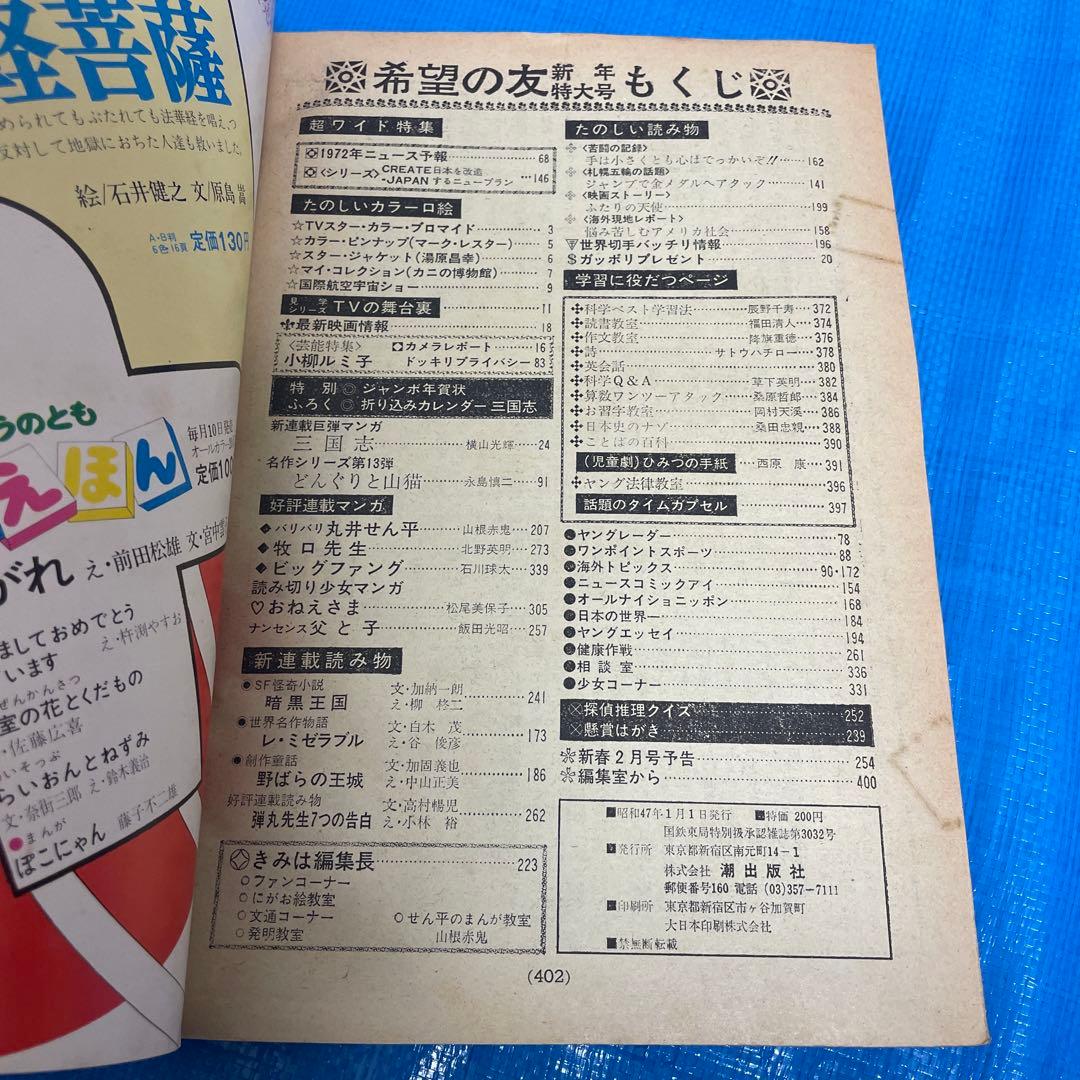 経菩薩
められてもぶたれても法華経を唱え、つ
反対して地獄におちた人達も救いました。
絵/石井健之 文/原島嵩
A・B判
6色16頁 定価130円
うのとも
えほん
毎月10日発売
定価100
がれ え・前田松雄 文・宮中雲
ましておめでとう
え・杵渕やすお
います
ぜんかんさつ
室の花とくだもの
・佐藤広喜
いそっぷ
らいおんとねずみ
文・奈街三郎 え・鈴木義治
●まんが
ぽこにゃん 藤子不二雄
希望の友 新年特大号 もくじ
超ワイド特集
1972年ニュース予報……68
〈シリーズ〉CREATE-JAPAN 日本を改造するニュープラン…146
たのしいカラー口絵
☆TVスター・カラー・ブロマイド……3
☆カラー・ピンナップ(マーク・レスター)……5
☆スター・ジャケット(湯原昌幸)……6
☆マイ・コレクション(カニの博物館)……7
☆国際航空宇宙ショー……9
見学シリーズ TVの舞台裏……11
最新映画情報……18
〈芸能特集〉 カメラレポート……16
小柳ルミ子 ドッキリプライバシー 83
特別 ◎ ジャンボ年賀状
ふろく ◎ 折り込みカレンダー三国志
新連載巨弾マンガ
三国志……横山光輝…24
名作シリーズ第13弾
どんぐりと山猫……永島慎二…91
好評連載マンガ
◆バリバリ丸井せん平……山根赤鬼…207
◆牧口先生……北野英明…273
◆ビッグファング……石川球太…339
読み切り少女マンガ
♡おねえさま……松尾美保子…305
ナンセンス父と子……飯田光昭…257
新連載読み物
●SF怪奇小説
暗黒王国 文・加納一朗 え・柳柊二 241
●世界名作物語
レ・ミゼラブル 文・白木茂 え・谷俊彦 173
●創作童話
野ばらの王城 文・加固義也 え・中山正美 186
好評連載読み物
弾丸先生7つの告白 文・高村暢児 え・小林裕 262
きみは編集長……223
○ファンコーナー
○にがお絵教室
○文通コーナー
○発明教室
○せん平のまんが教室
山根赤鬼
たのしい読み物
〈苦闘の記録〉
手は小さくとも心はでっかいぞ!!……162
〈札幌五輪の話題〉
ジャンプで金メダルへアタック……141
〈映画ストーリー〉
ふたりの天使……199
〈海外現地レポート〉
悩み苦しむアメリカ社会……158
世界切手バッチリ情報……196
$ガッポリプレゼント……20
学習に役だつページ
科学ベスト学習法……辰野千寿…372
読書教室……福田清人…374
作文教室……降旗重徳…376
詩……サトウハチロー…378
英会話……380
科学Q&A……草下英明…382
算数ワンツーアタック……桑原哲郎…384
お習字教室……岡村天溪…386
日本史のナゾ……桑田忠親…388
ことばの百科……390
(児童劇)ひみつの手紙…西原 康…391
ヤング法律教室……396
話題のタイムカプセル……397
●ヤングレーダー……78
●ワンポイントスポーツ……88
●海外トピックス……90・172
●ニュースコミックアイ……154
●オールナイショニッポン……168
●日本の世界一……184
●ヤングエッセイ……194
●健康作戦……261
●相談室……336
●少女コーナー……331
×探偵推理クイズ……252
×懸賞はがき……239
新春2月号予告……254
編集室から……400
■昭和47年1月1日発行 ■特価 200円
国鉄東局特別扱承認雑誌第3032号
■発行所 東京都新宿区南元町14-1
株式会社 潮出版社
郵便番号160 電話(03)357-7111
■印刷所 東京都新宿区市ヶ谷加賀町
大日本印刷株式会社
■禁無断転載
(402)